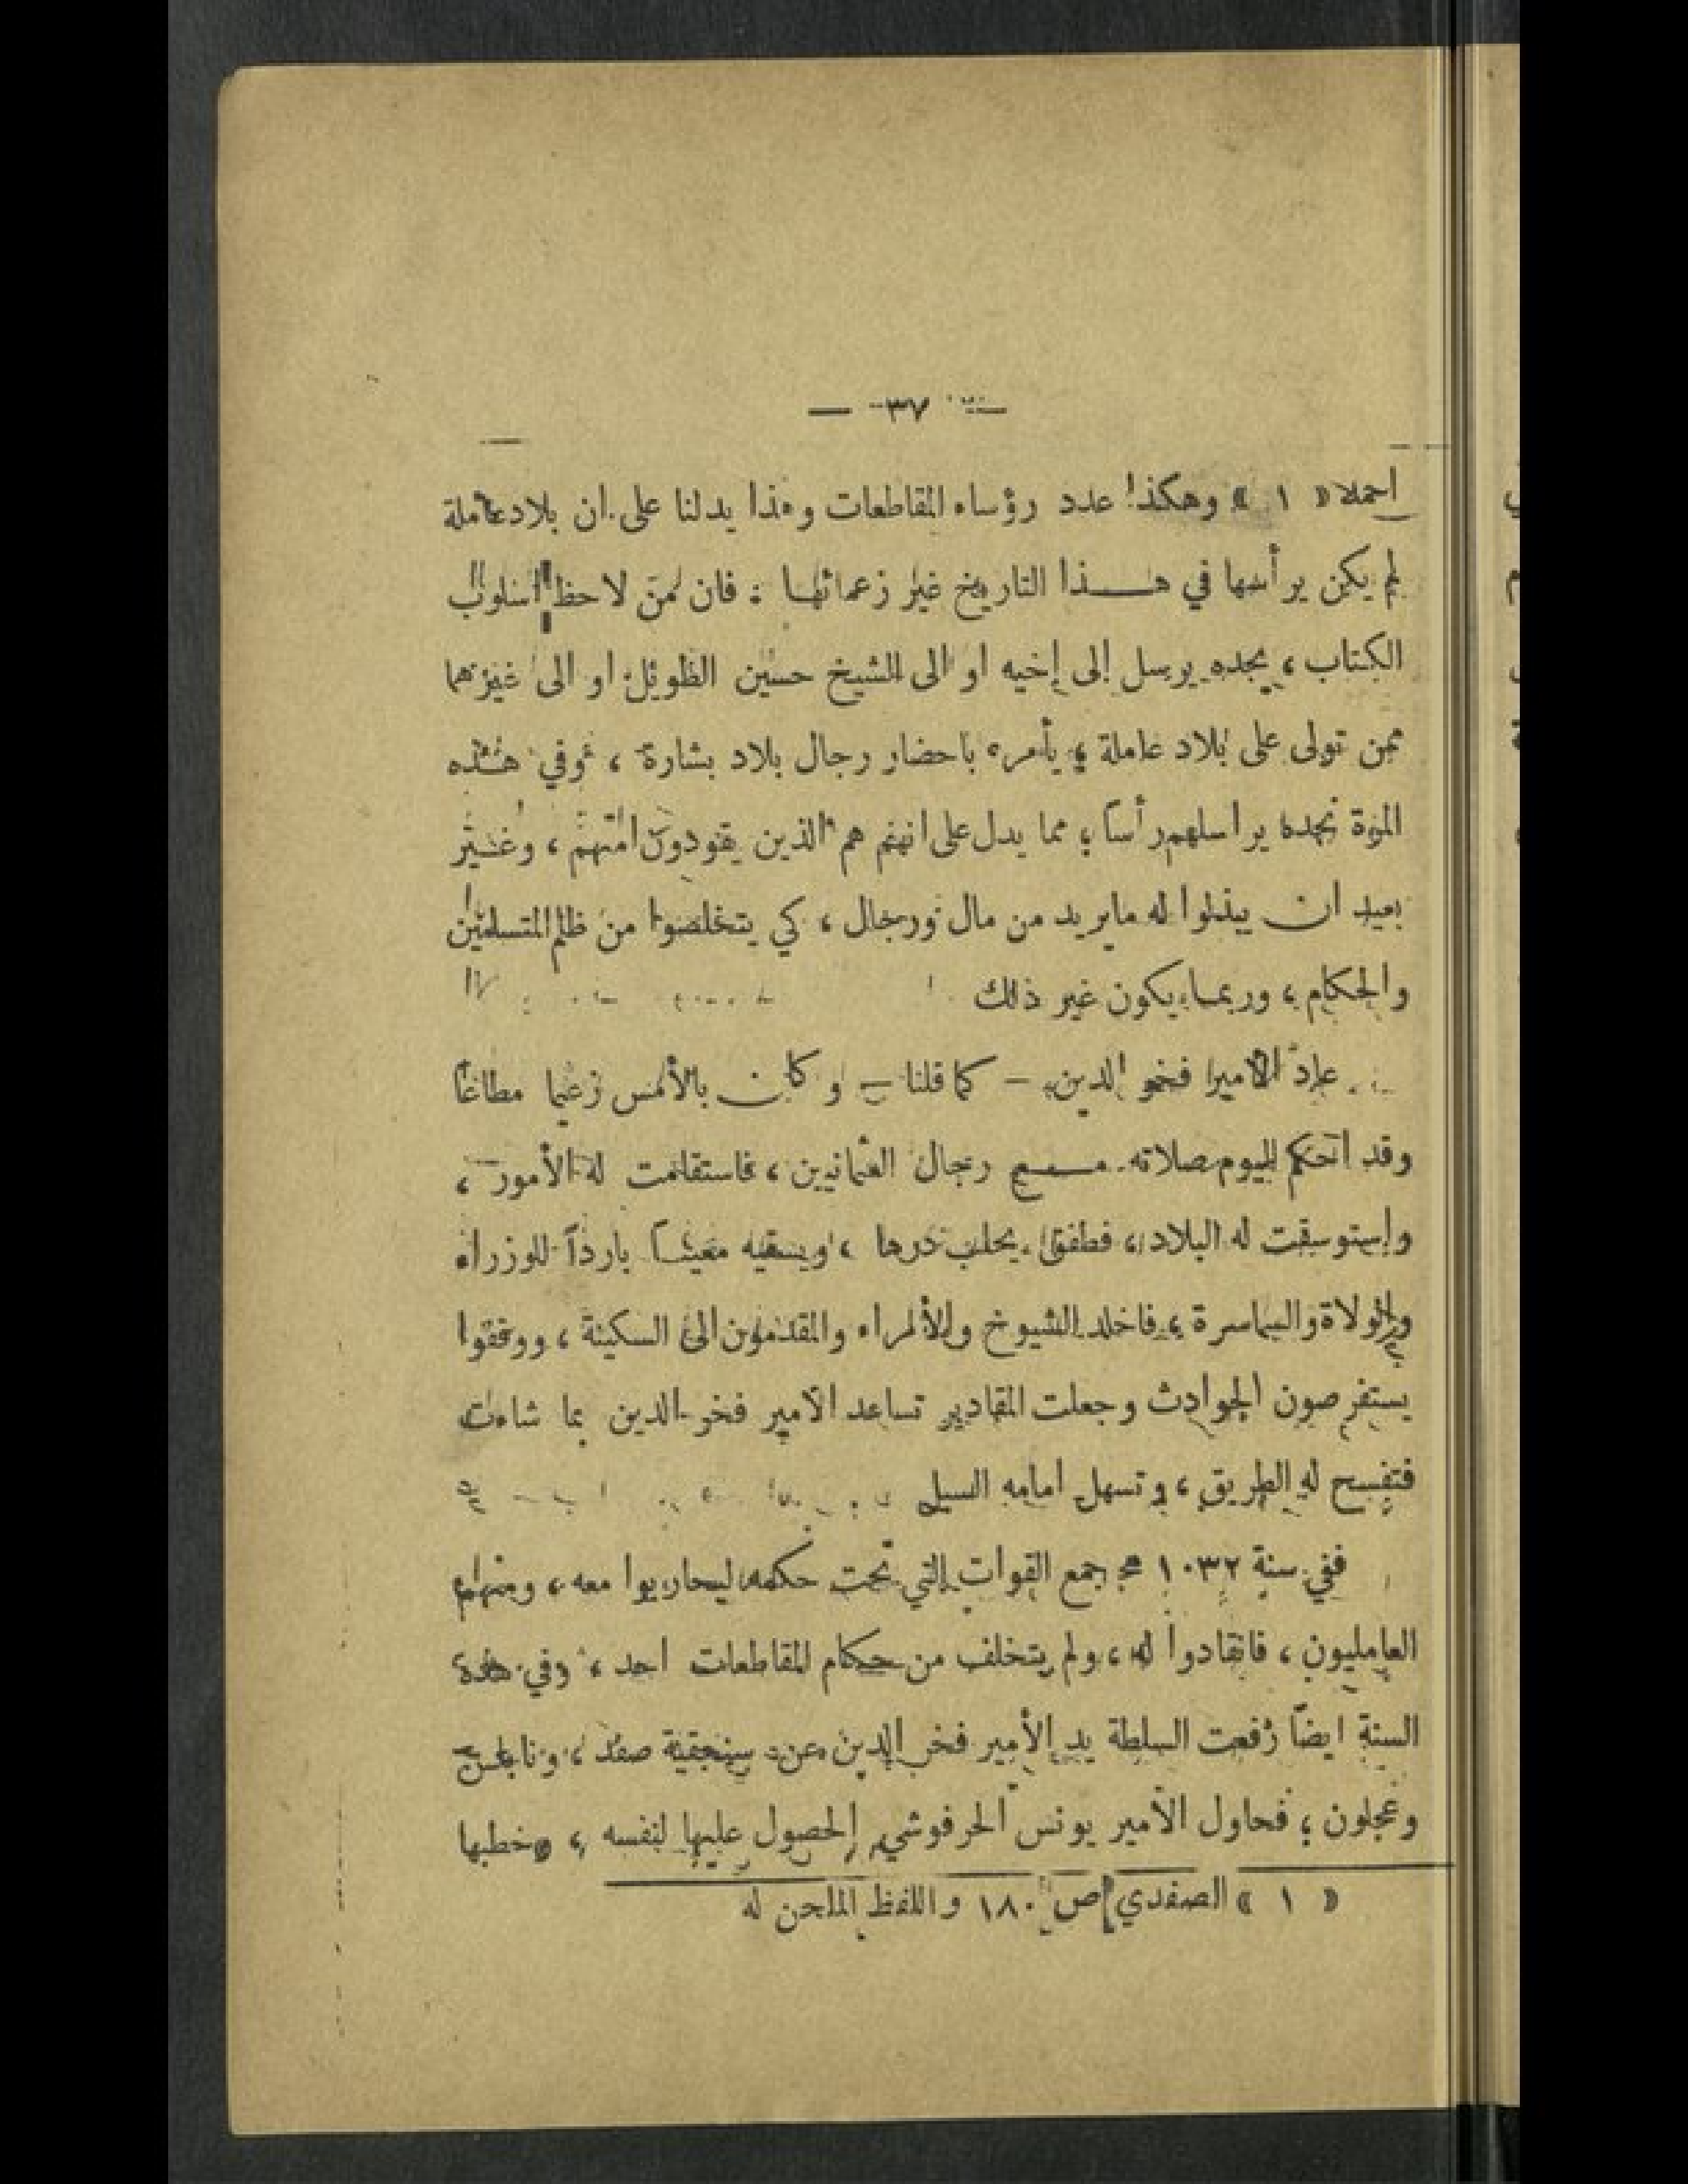 — ٣٧ —
احمله « ١ » وهكذا عدد رؤساء المقاطعات وهذا يدلنا على ان بلاد عاملة
لم يكن يرأسها في هـذا التاريخ غير زعمائها : فان من لاحظ اسلوب
الكتاب ، يجده يرسل إلى إخيه او الى الشيخ حسين الطويل او الى غيرهما
ممن تولى على بلاد عاملة ، يأمره باحضار رجال بلاد بشارة ، وفي هذه
المرة نجده يراسلهم رأساً ، مما يدل على انهم هم الذين يقودون امتهم ، وغير
بعيد ان يبذلوا له مايريد من مال ورجال ، كي يتخلصوا من ظلم المتسلمين
والحكام ، وربما يكون غير ذلك
عاد الأمير فخر الدين – كما قلنا – وكان بالأمس زعيما مطاعاً
وقد احكم اليوم صلاته مـع رجال العثمانيين ، فاستقامت له الأمور ،
وإستوسقت له البلاد ، فطفق يحلب درها ، ويسقيه معيناً بارداً للوزراء
والولاة والسماسرة ، فاخلد الشيوخ والأمراء والمقدمون الى السكينة ، ووقفوا
يستفرصون الحوادث وجعلت المقادير تساعد الأمير فخر الدين بما شاءت
فتفسح له الطريق ، وتسهل امامه السبل
ففي سنة ١٠٣٢ هج جمع القوات التي تحت حكمه ليحاربوا معه ، ومنهم
العامليون ، فانقادوا له ، ولم يتخلف من حكام المقاطعات احد ، وفي هذه
السنة ايضاً رفعت السلطة يد الأمير فخر الدين عن سنجقية صفد ، ونابلس
وعجلون ، فحاول الأمير يونس الحرفوشي الحصول عليها لنفسه ، وخطبها
« ١ » الصفدي ص ١٨٠ واللفظ الملحن له